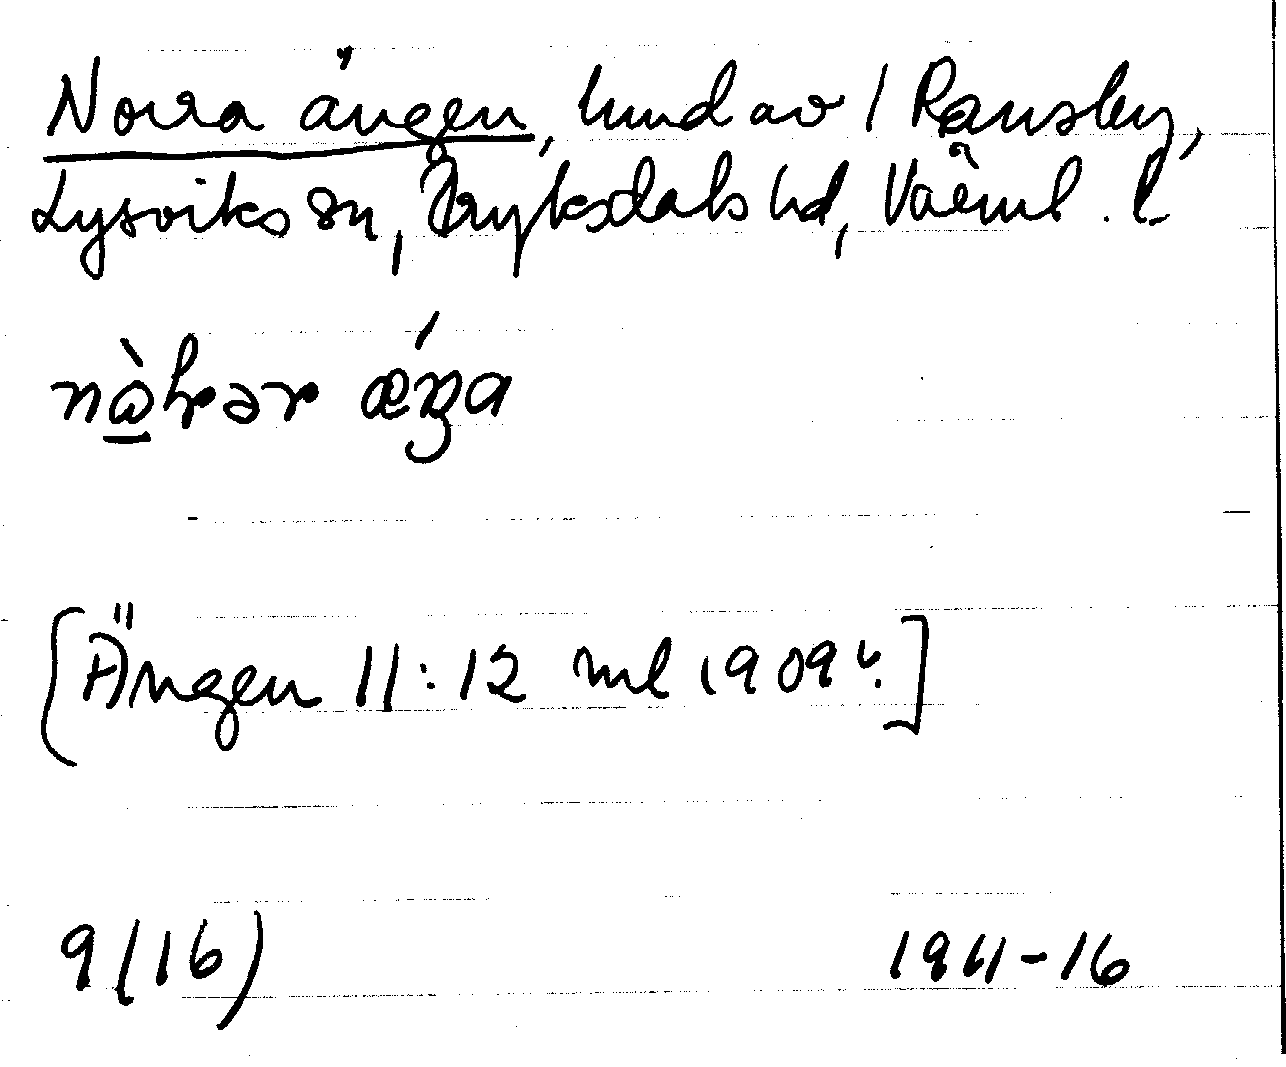 Norra ängen, hmd av 1 Ransby,
Lysviks sn, Fryksdals hd, Värml. l.
nàhrər ǽŋa
[Ängen 11:12 ml 1909 u.]
9(16) 1911-16